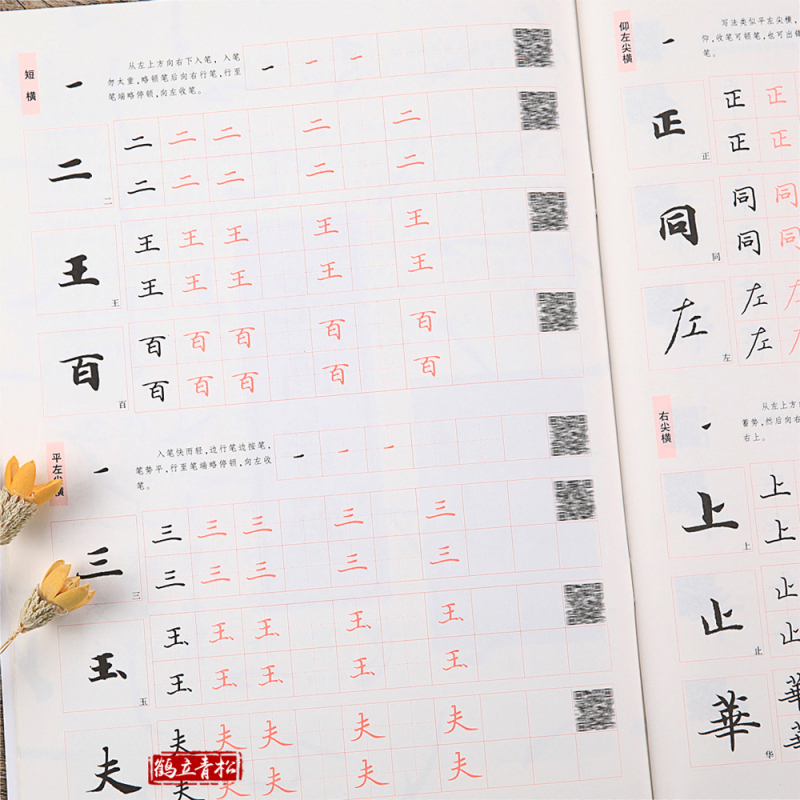 短横
一
从左上方向右下入笔，入笔
勿太重，略顿笔后向右行笔，行至
笔端略停顿，向左收笔。
一 一 一
二 二 二 二 二 二
二 二 二 二 二 二
王 王 王 王 王 王
王 王 王 王 王 王
百 百 百 百 百 百
百 百 百 百 百 百
平左尖横
一
入笔快而轻，边行笔边按笔，
笔势平，行至笔端略停顿，向左收
笔。
一 一 一
三 三 三 三 三 三
三 三 三 三 三 三
玉 玉 玉 玉 玉 玉
玉 玉 玉 玉 玉 玉
夫 夫 夫 夫 夫 夫
夫 夫 夫 夫 夫
鹤立青松
仰左尖横
一
写法类似平左尖横，
仰，收笔可顿笔，也可出锋
笔。
正 正 正
正 正 正
同 同 同
同 同 同
左 左 左
左 左 左
右尖横
一
从左上方
蓄势，然后向右
右上。
上 上
上 上
止 止
止 止
華 華
华 華